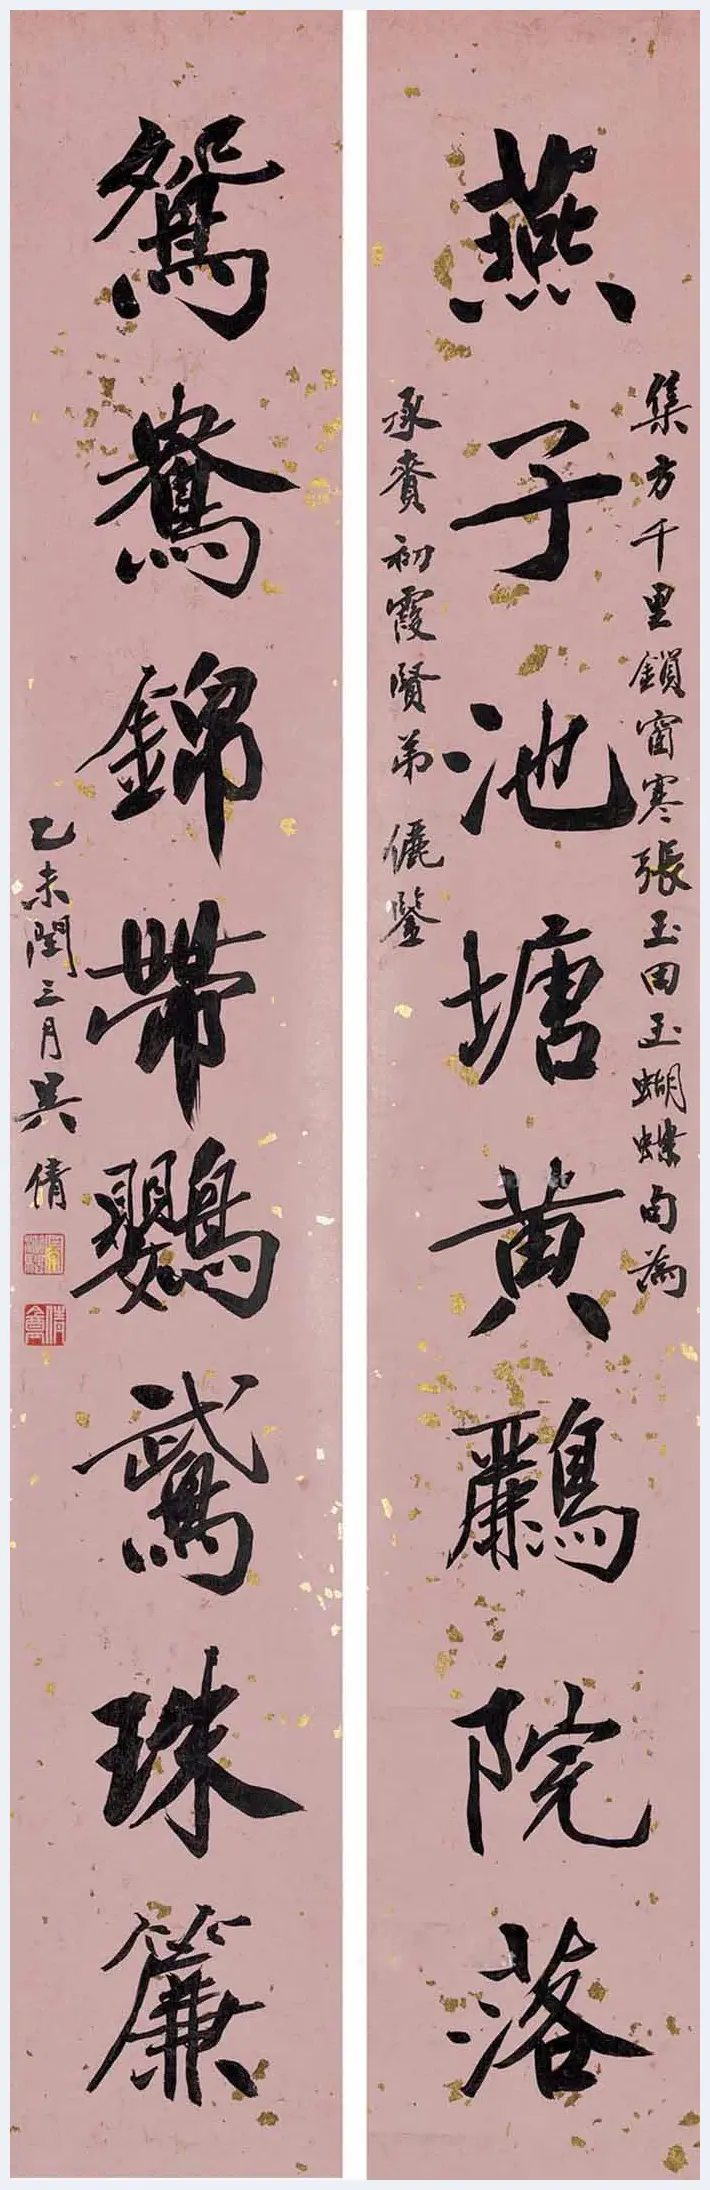 燕子池塘黄鸝院落
集方千里鎖窗寒張玉田玉蝴蝶句為
承賚初霞賢弟儷鑒
鴛鴦錦帶鸚鵡珠簾
乙未閏三月吳倩